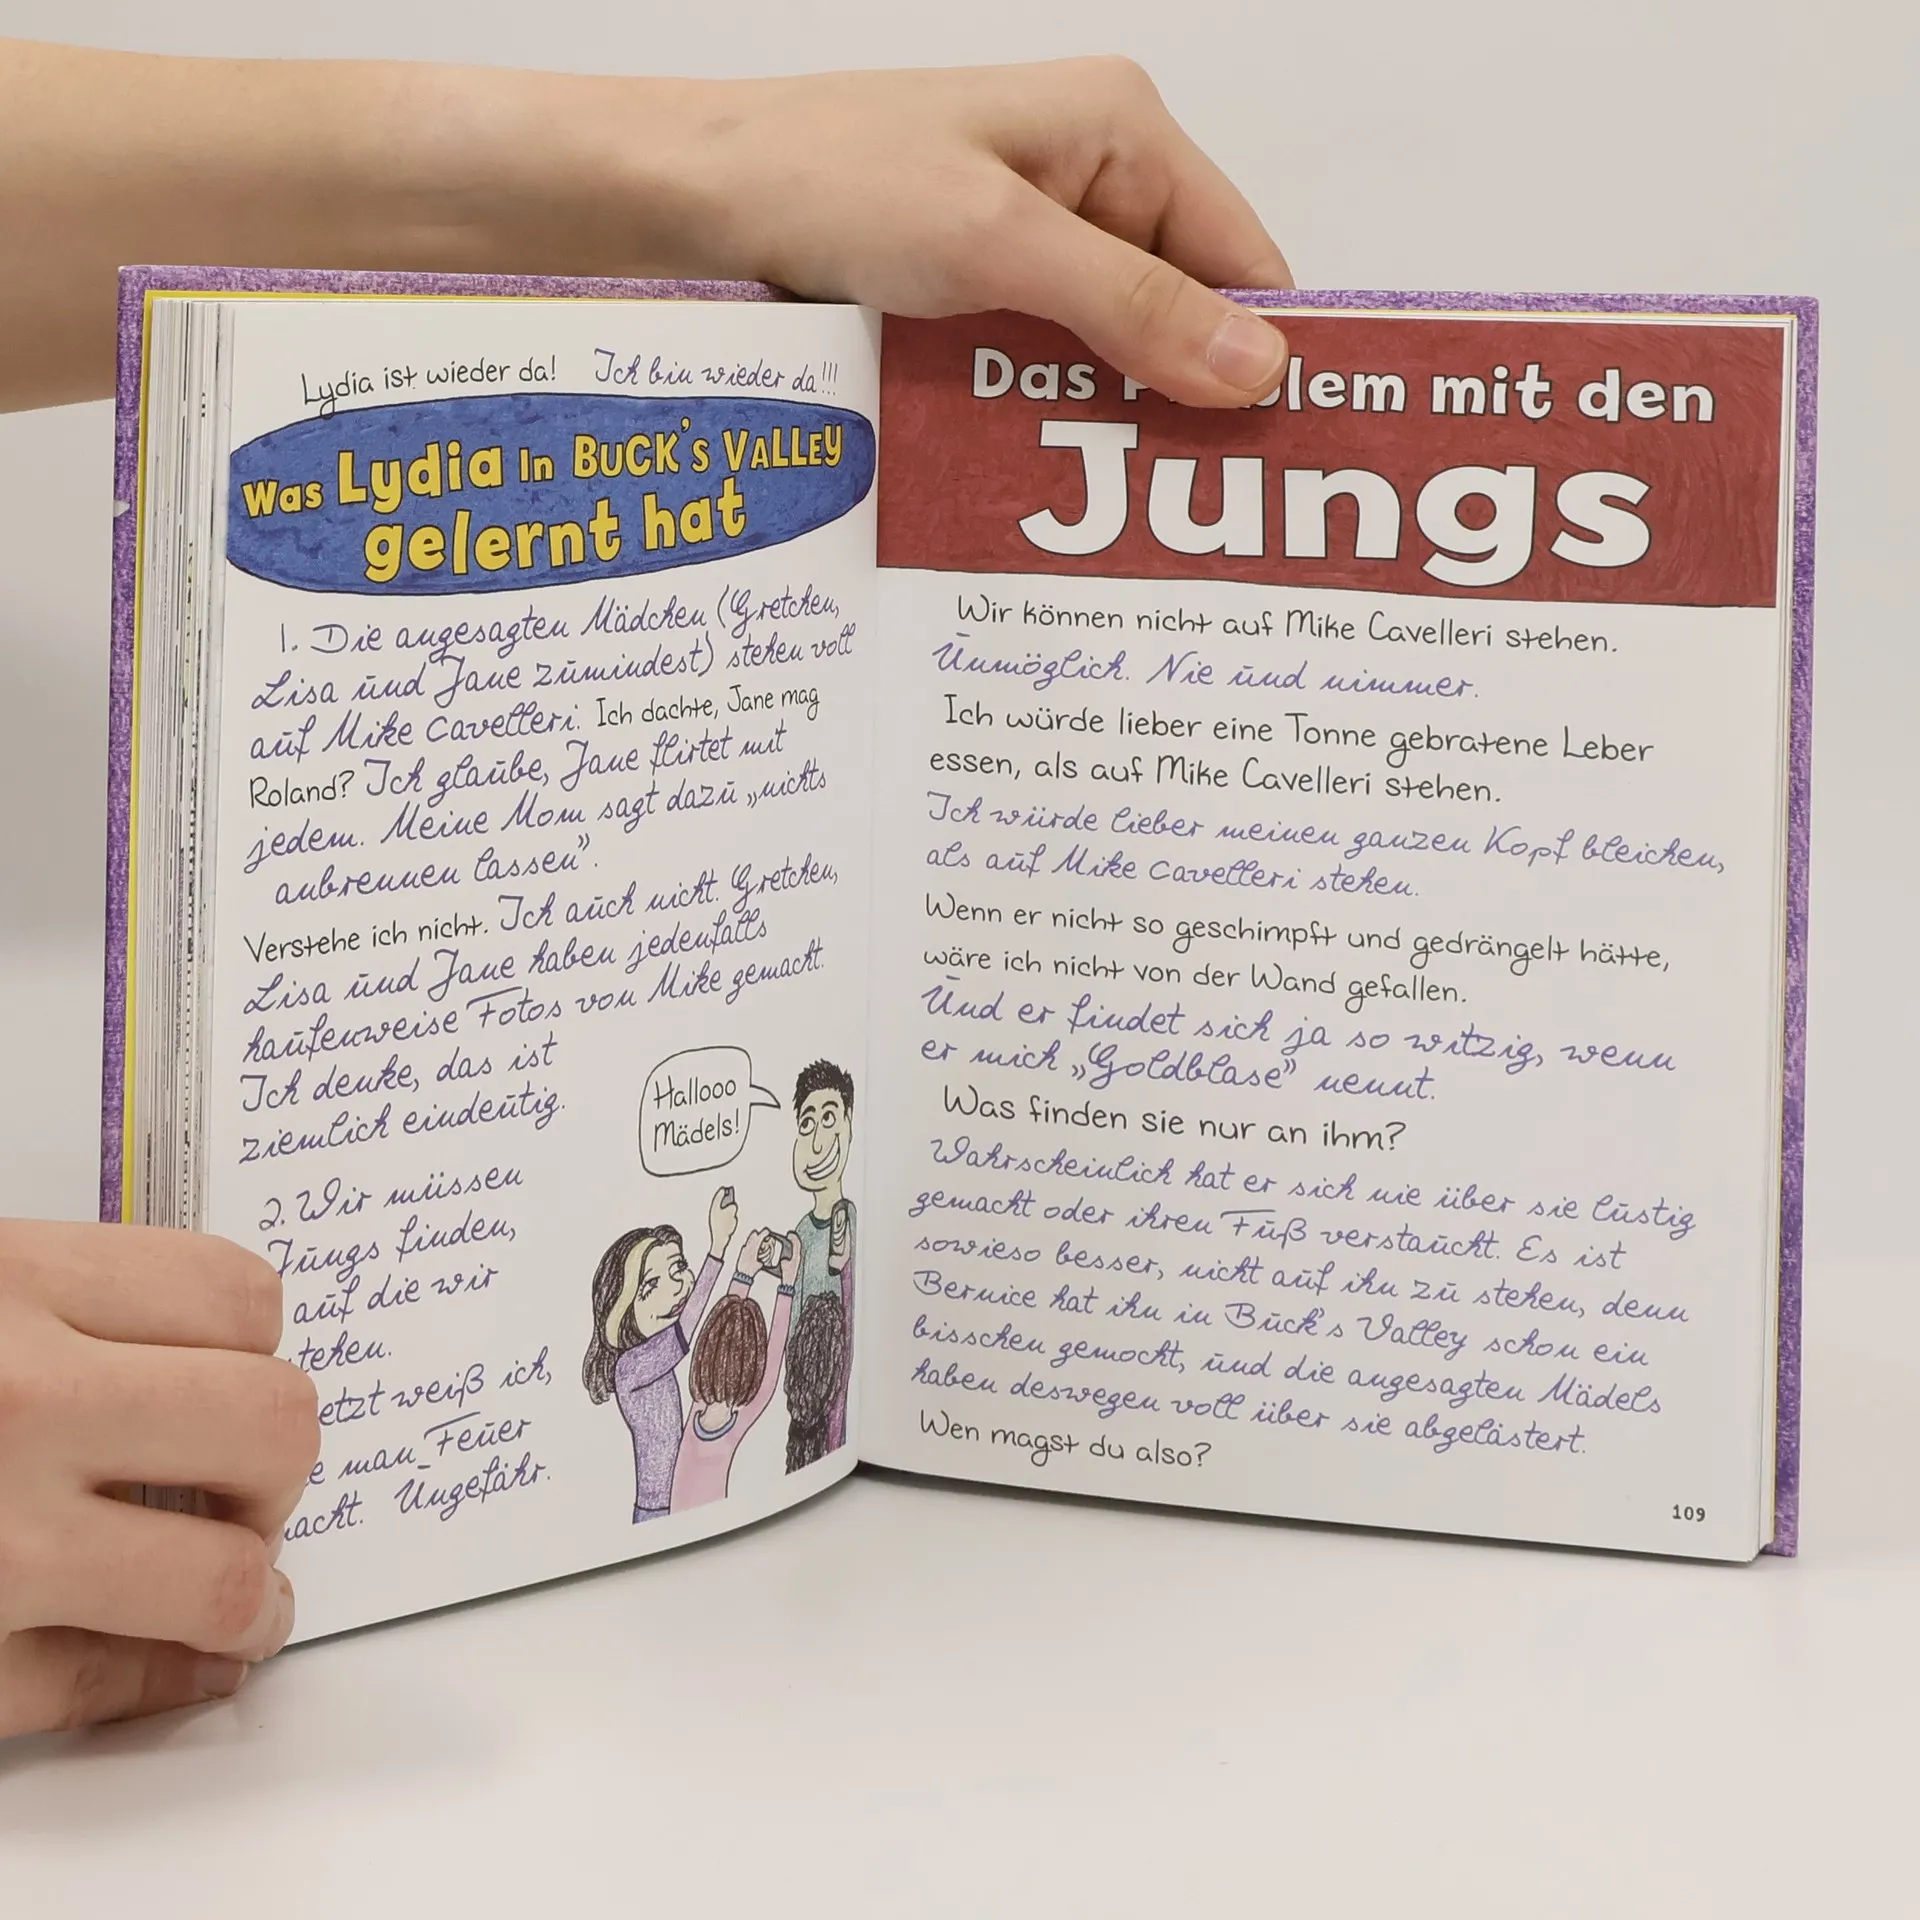 Lydia ist wieder da! Ich bin wieder da!!!
Was Lydia In BUCK'S VALLEY
gelernt hat
1. Die angesagten Mädchen (Gretchen,
Lisa und Jane zumindest) stehen voll
auf Mike Cavelleri. Ich dachte, Jane mag
Roland? Ich glaube, Jane flirtet mit
jedem. Meine Mom sagt dazu „nichts
anbrennen lassen”.
Verstehe ich nicht. Ich auch nicht. Gretchen,
Lisa und Jane haben jedenfalls
haufenweise Fotos von Mike gemacht.
Ich denke, das ist
ziemlich eindeutig.
2. Wir müssen
Jungs finden,
auf die wir
tehen.
etzt weiß ich,
e man Feuer
acht. Ungefähr.
Hallooo
Mädels!
Das P lem mit den
Jungs
Wir können nicht auf Mike Cavelleri stehen.
Unmöglich. Nie und nimmer.
Ich würde lieber eine Tonne gebratene Leber
essen, als auf Mike Cavelleri stehen.
Ich würde lieber meinen ganzen Kopf bleichen,
als auf Mike Cavelleri stehen.
Wenn er nicht so geschimpft und gedrängelt hätte,
wäre ich nicht von der Wand gefallen.
Und er findet sich ja so witzig, wenn
er mich „Goldblase” nennt.
Was finden sie nur an ihm?
Wahrscheinlich hat er sich nie über sie lustig
gemacht oder ihren Fuß verstaucht. Es ist
sowieso besser, nicht auf ihn zu stehen, denn
Bernice hat ihn in Buck's Valley schon ein
bisschen gemocht, und die angesagten Mädels
haben deswegen voll über sie abgelästert.
Wen magst du also?
109